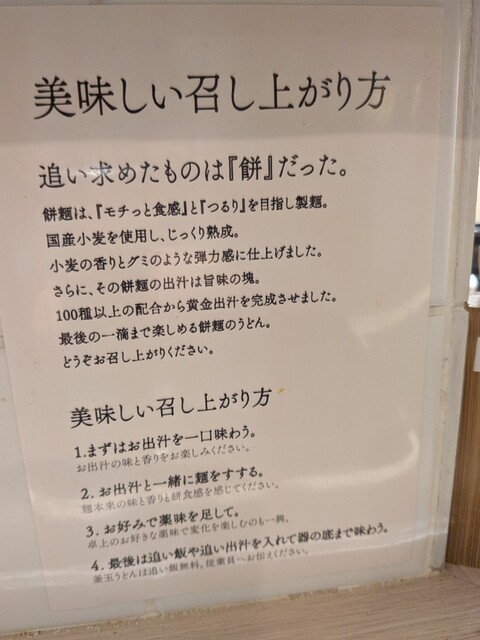 美味しい召し上がり方
追い求めたものは『餅』だった。
餅麺は、『モチっと食感』と『つるり』を目指し製麺。
国産小麦を使用し、じっくり熟成。
小麦の香りとグミのような弾力感に仕上げました。
さらに、その餅麺の出汁は旨味の塊。
100種以上の配合から黄金出汁を完成させました。
最後の一滴まで楽しめる餅麺のうどん。
どうぞお召し上がりください。
美味しい召し上がり方
1.まずはお出汁を一口味わう。
お出汁の味と香りをお楽しみください。
2.お出汁と一緒に麺をすする。
麺本来の味と香りと餅食感を感じてください。
3.お好みで薬味を足して。
卓上のお好きな薬味で変化を楽しむのも一興。
4.最後は追い飯や追い出汁を入れて器の底まで味わう。
釜玉うどんは追い飯無料。従業員へお伝えください。